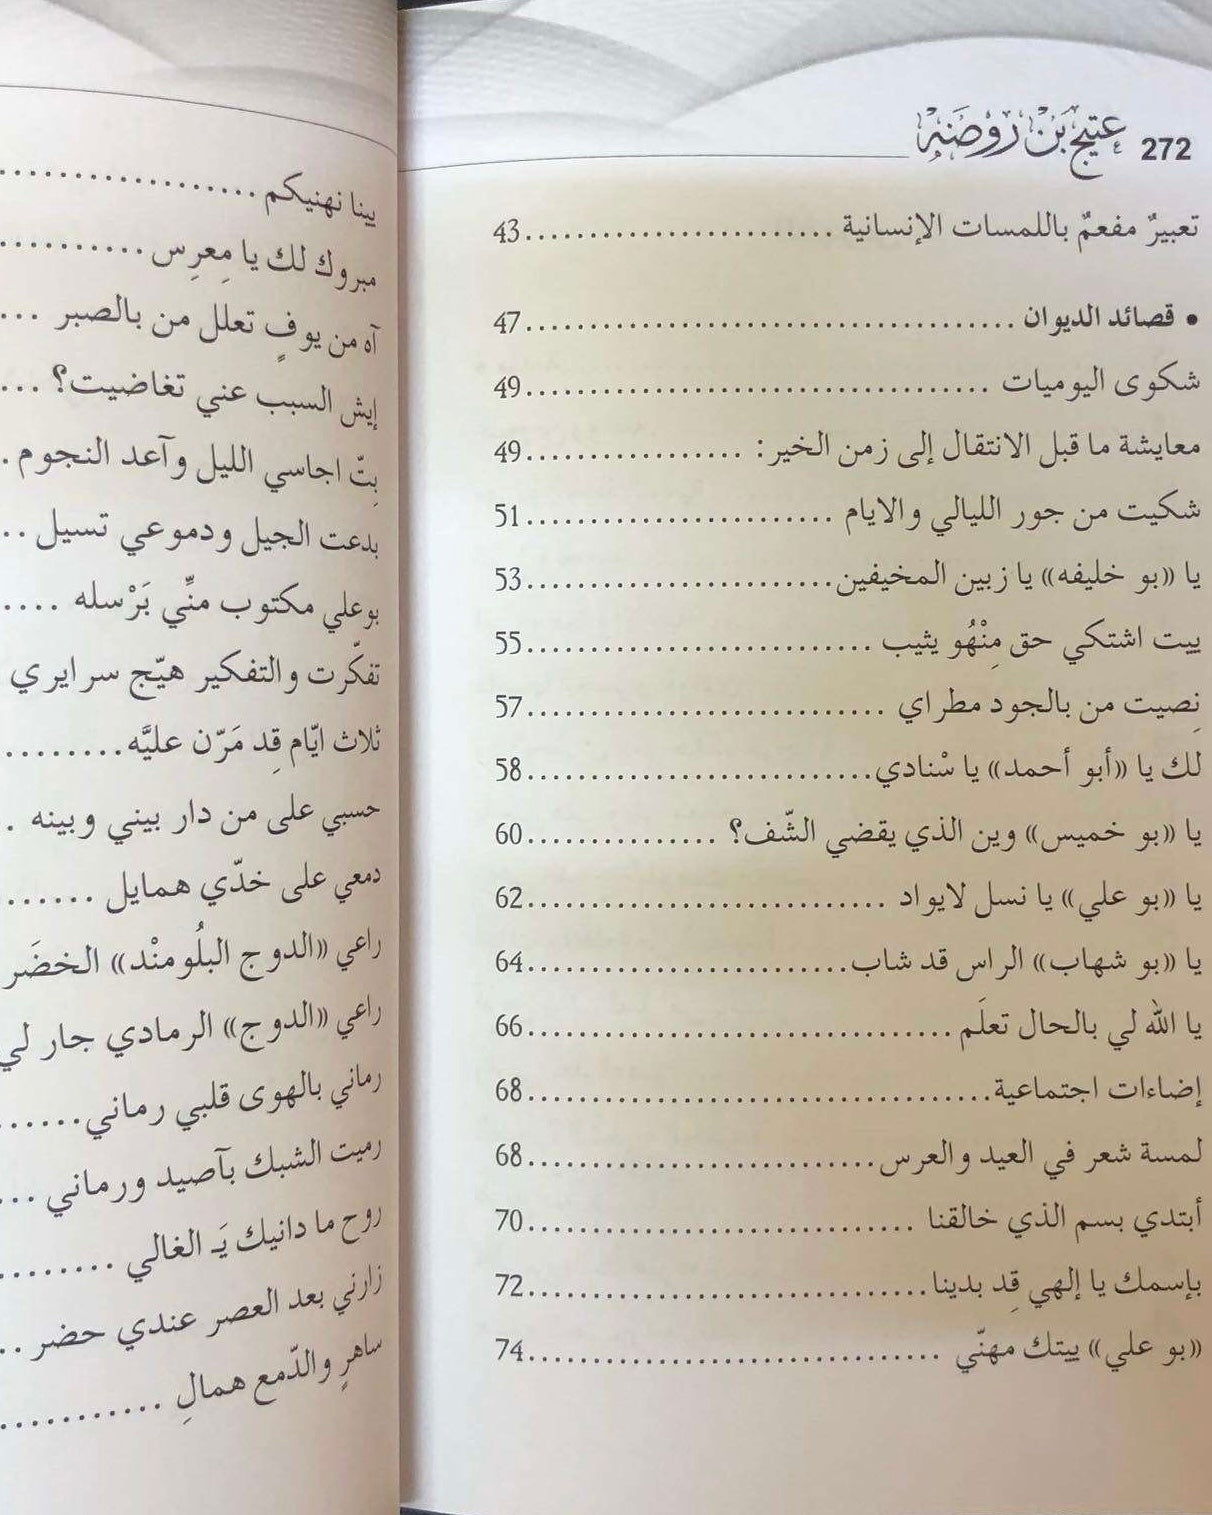 272 عتيج بن روضه
تعبيرٌ مفعمٌ باللمسات الإنسانية ........................ 43
• قصائد الديوان ....................................... 47
شكوى اليوميات ..................................... 49
معايشة ما قبل الانتقال إلى زمن الخير: ................. 49
شكيت من جور الليالي والايام ........................ 51
يا «بو خليفه» يا زبين المخيفين ........................ 53
ييت اشتكي حق مِنْهُو يثيب ........................... 55
نِصيت من بالجود مطراي ............................ 57
لك يا «أبو أحمد» يا سْنادي ........................... 58
يا «بو خميس» وين الذي يقضي الشّف؟ ............... 60
يا «بو علي» يا نسل لايواد ............................ 62
يا «بو شهاب» الراس قد شاب ......................... 64
يا الله لي بالحال تعلَم ................................. 66
إضاءات اجتماعية ..................................... 68
لمسة شعر في العيد والعرس ............................ 68
أبتدي بسم الذي خالقنا ............................... 70
بإسمك يا إلهي قِد بدينا ................................ 72
«بو علي» ييتك مهنّي ................................. 74
يينا نهنيكم ..................
مبروك لك يا مِعرِس ...........
آه من يوفٍ تعلل من بالصبر ...
إيش السبب عني تغاضيت؟ ...
بِتّ اجاسي الليل وآعد النجوم .
بدعت الجيل ودموعي تسيل ..
بوعلي مكتوب منِّي بَرْسله ....
تفكّرت والتفكير هيّج سرايري
ثلاث ايّام قِد مَرّن عليَّه .........
حسبي على من دار بيني وبينه .
دمعي على خدّي همايل ......
راعي «الدوج البلُومنْد» الخضَر
راعي «الدوج» الرمادي جار لي
رماني بالهوى قلبي رماني ......
رميت الشبك بآصيد ورماني ...
روح ما دانيك يَـ الغالي .........
زارني بعد العصر عندي حضر ..
ساهرٍ والدّمع همالِ ...........